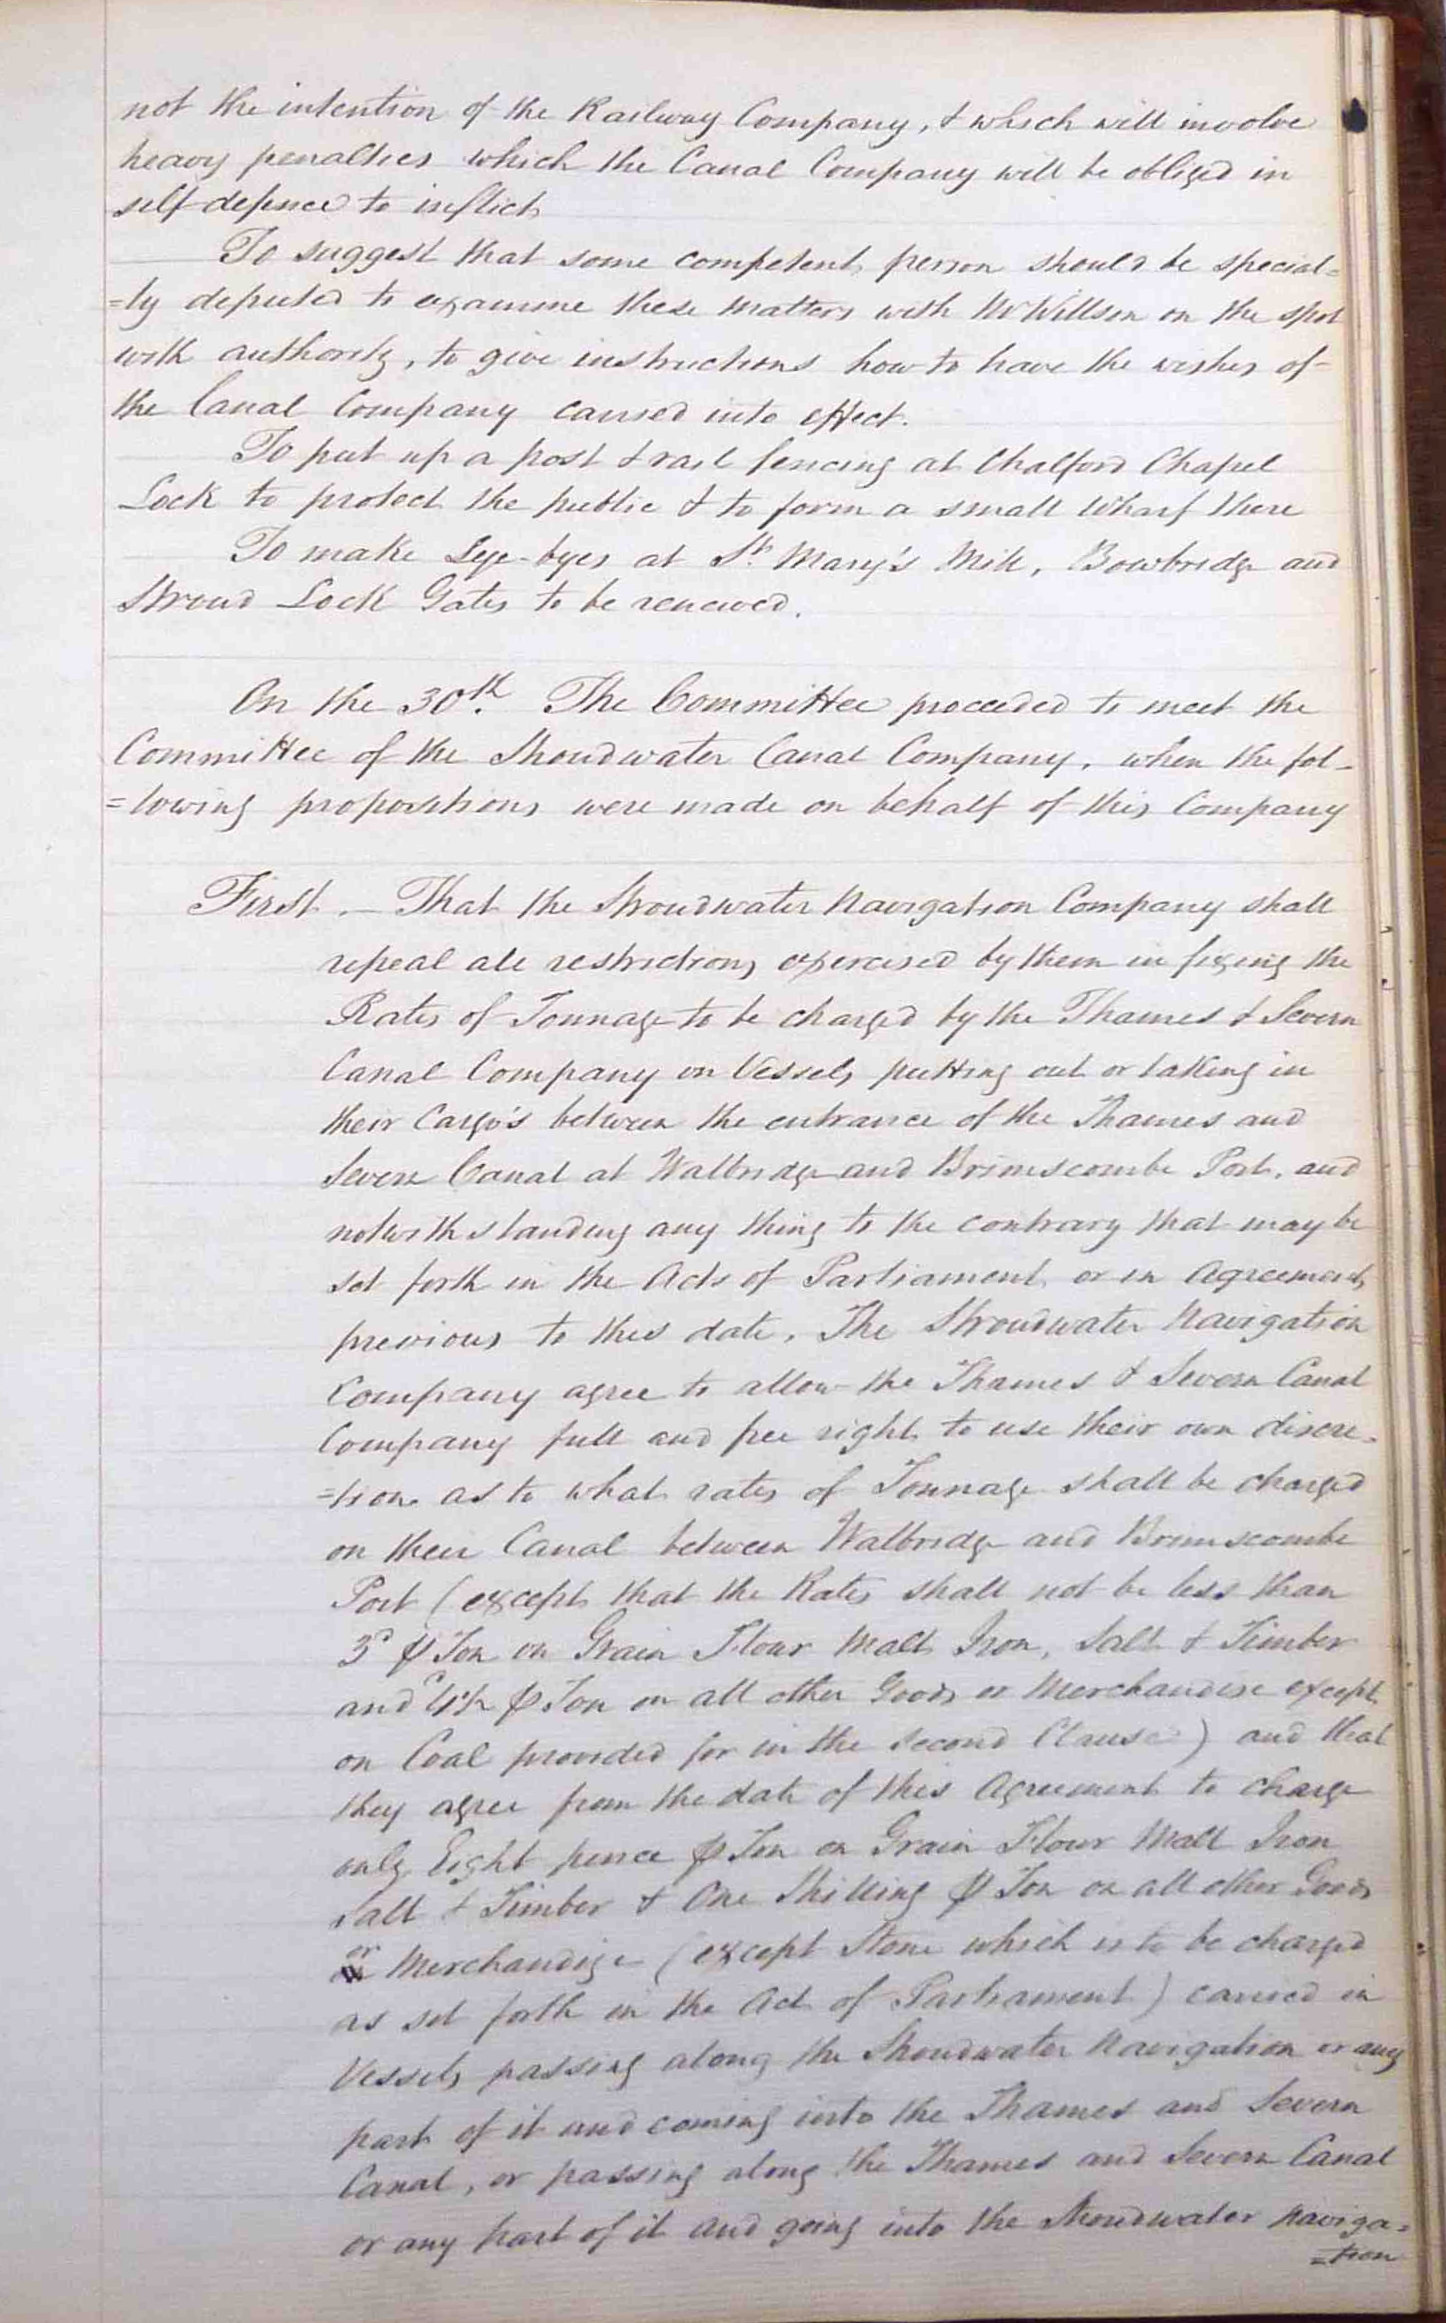 not the intention of the Railway Company, & which will involve
heavy penalties which the Canal Company will be obliged in
self-defence to inflict
To suggest that some competent person should be special=
=ly deputed to examine these matters with Mr Willson on the spot
with authority, to give instructions how to have the wishes of
the Canal Company carried into effect.
To put up a post & rail fencing at Chalford Chapel
Lock to protect the public & to form a small Wharf there
To make Lye-byes at St. Mary's Mill, Bowbridge and
Stroud Lock Gates to be renewed.
On the 30th. The Committee proceeded to meet the
Committee of the Stroudwater Canal Company, when the fol-
=lowing propositions were made on behalf of this Company
First. — That the Stroudwater Navigation Company shall
repeal all restrictions exercised by them in fixing the
Rates of Tonnage to be charged by the Thames & Severn
Canal Company on Vessels putting out or taking in
their Cargo's between the entrance of the Thames and
Severn Canal at Walbridge and Brimscombe Port, and
notwithstanding any thing to the contrary that may be
set forth in the Acts of Parliament or in Agreements
previous to this date, The Stroudwater Navigation
Company agree to allow the Thames & Severn Canal
Company full and free right to use their own discre-
=tion as to what rates of Tonnage shall be charged
on their Canal between Walbridge and Brimscombe
Port (except that the Rates shall not be less than
3d ⅌ Ton on Grain Flour Malt Iron, Salt & Timber
and ⅌ Ton on all other Goods or Merchandise except
on Coal provided for in the second Clause) and that
they agree from the date of this Agreement to charge
only Eight pence ⅌ Ton on Grain Flour Malt Iron
Salt & Timber & One Shilling ⅌ Ton on all other Goods
or Merchandize (except Stone which is to be charged
as set forth in the Act of Parliament) carried in
Vessels passing along the Stroudwater Navigation or any
part of it and coming into the Thames and Severn
Canal, or passing along the Thames and Severn Canal
or any part of it and going into the Stroudwater Naviga=
=tion